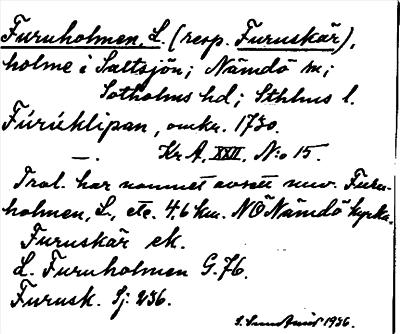 Furuholmen, L. (resp. Furuskär),
holme i Saltsjön; Nämdö sn;
Sotholms hd; Sthlms l.
Fúrúklipan, omkr. 1730.
—. Kr A, XXII, N:o 15.
Trol. har namnet avsett nuv. Furu-
holmen, L., etc. 4,6 km. NÖ Nämdö kyrka.
Furuskär ek.
L. Furuholmen G. 76.
Furusk. Sj: 236.
1936.